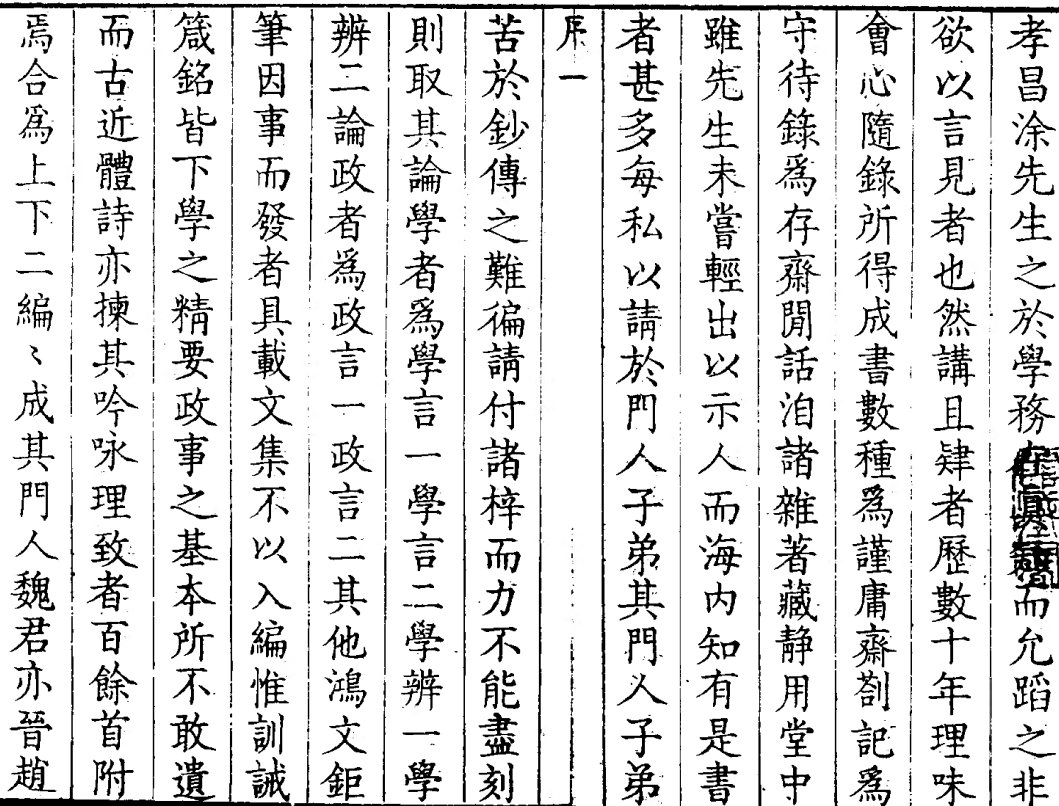 孝昌涂先生之於學務在真知而允蹈之非
欲以言見者也然講且肄者歷數十年理味
會心隨錄所得成書數種爲謹庸齋劄記爲
守待錄爲存齋閒話洎諸雜著藏靜用堂中
雖先生未嘗輕出以示人而海内知有是書
者甚多每私以請於門人子弟其門人子弟
序一
苦於鈔傳之難徧請付諸梓而力不能盡刻
則取其論學者爲學言一學言二學辨一學
辨二論政者爲政言一政言二其他鴻文鉅
筆因事而發者具載文集不以入編惟訓誡
箴銘皆下學之精要政事之基本所不敢遺
而古近體詩亦揀其吟咏理致者百餘首附
焉合爲上下二編〻成其門人魏君亦晉趙